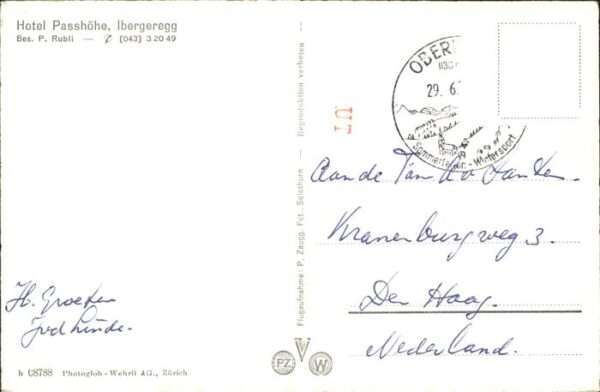 Hotel Passhöhe, Ibergeregg
Bes. P. Rubli — ✆ (043) 3 20 49
H. Groeten
h C8788 Photoglob-Wehrli AG., Zürich
Flugaufnahme: P. Zaugg, Fot., Solothurn — Reproduktion verboten —
PZ
W
OBER
29. 6.
Sommerferien - Wintersport
Aan de
Kranenburgweg 3.
Den Haag.
Nederland.